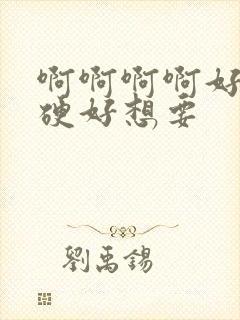 啊啊啊啊好
硬好想要
劉禹錫